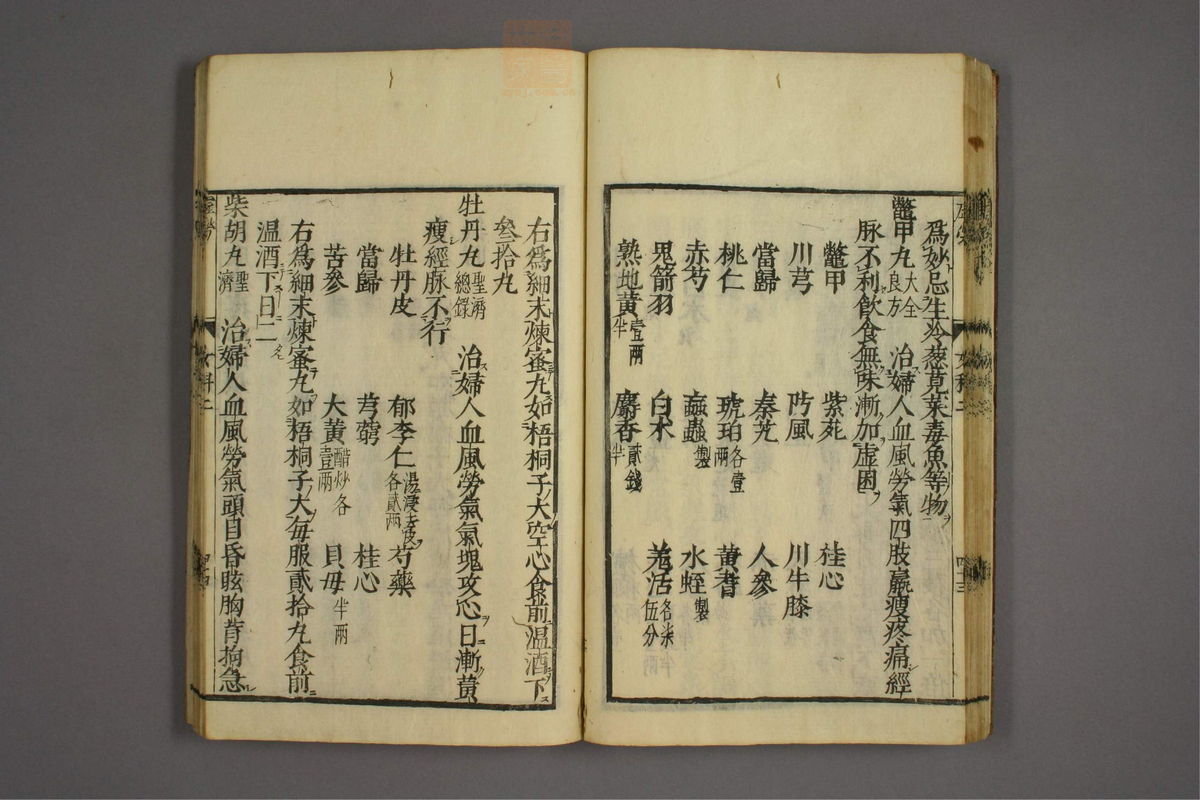 爲妙忌生冷葱莧菜毒魚等物
鼈甲丸大全良方 治婦人血風勞氣四肢羸瘦疼痛經
脉不利飲食無味漸加虚困
鼈甲 紫菀 桂心
川芎 防風 川牛膝
當歸 秦艽 人參
桃仁 琥珀各壹兩 黄耆
赤芍 蝱蟲製 水蛭製
鬼箭羽 白术 羗活各柒伍分
熟地黄壹兩半 麝香貳錢半
右爲細末煉蜜丸如梧桐子大空心食前温酒下
叄拾丸
牡丹丸聖濟總錄 治婦人血風勞氣氣塊攻心日漸黄
瘦經脉不行
牡丹皮 郁李仁湯浸去皮各貳兩 芍藥
當歸 芎藭 桂心
苦參 大黄醋炒各壹兩 貝母半兩
右爲細末煉蜜丸如梧桐子大每服貳拾丸食前
温酒下日二
柴胡丸聖濟 治婦人血風勞氣頭目昏眩胸背拘急